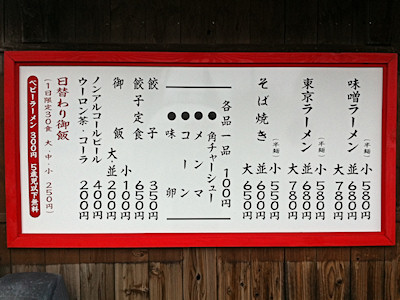 味噌ラーメン
(半麺) 小 580円
並 680円
大 780円
東京ラーメン
(半麺) 小 500円
並 600円
大 700円
そば焼き
(半麺) 小 500円
並 550円
大 650円
各品一品 100円
●角チャーシュー
●メンマ
●コーン
●味卵
餃子 350円
餃子定食 650円
御飯 小 100円
大・並 200円
ノンアルコールビール 400円
ウーロン茶・コーラ 200円
日替わり御飯
(1日限定30食 大 中・小 250円)
ベビーラーメン 300円 5歳児以下無料